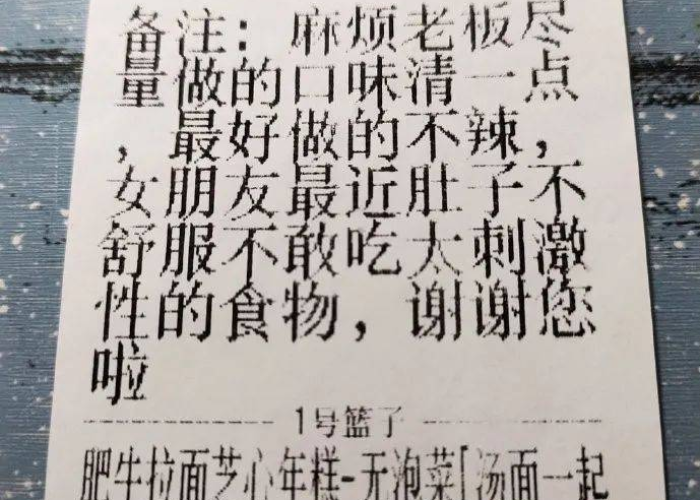 备注：麻烦老板尽
量做的口味清一点
，最好做的不辣，
女朋友最近肚子不
舒服不敢吃太刺激
性的食物，谢谢您
啦
1号篮子
肥牛拉面芝心年糕-无泡菜[汤面一起